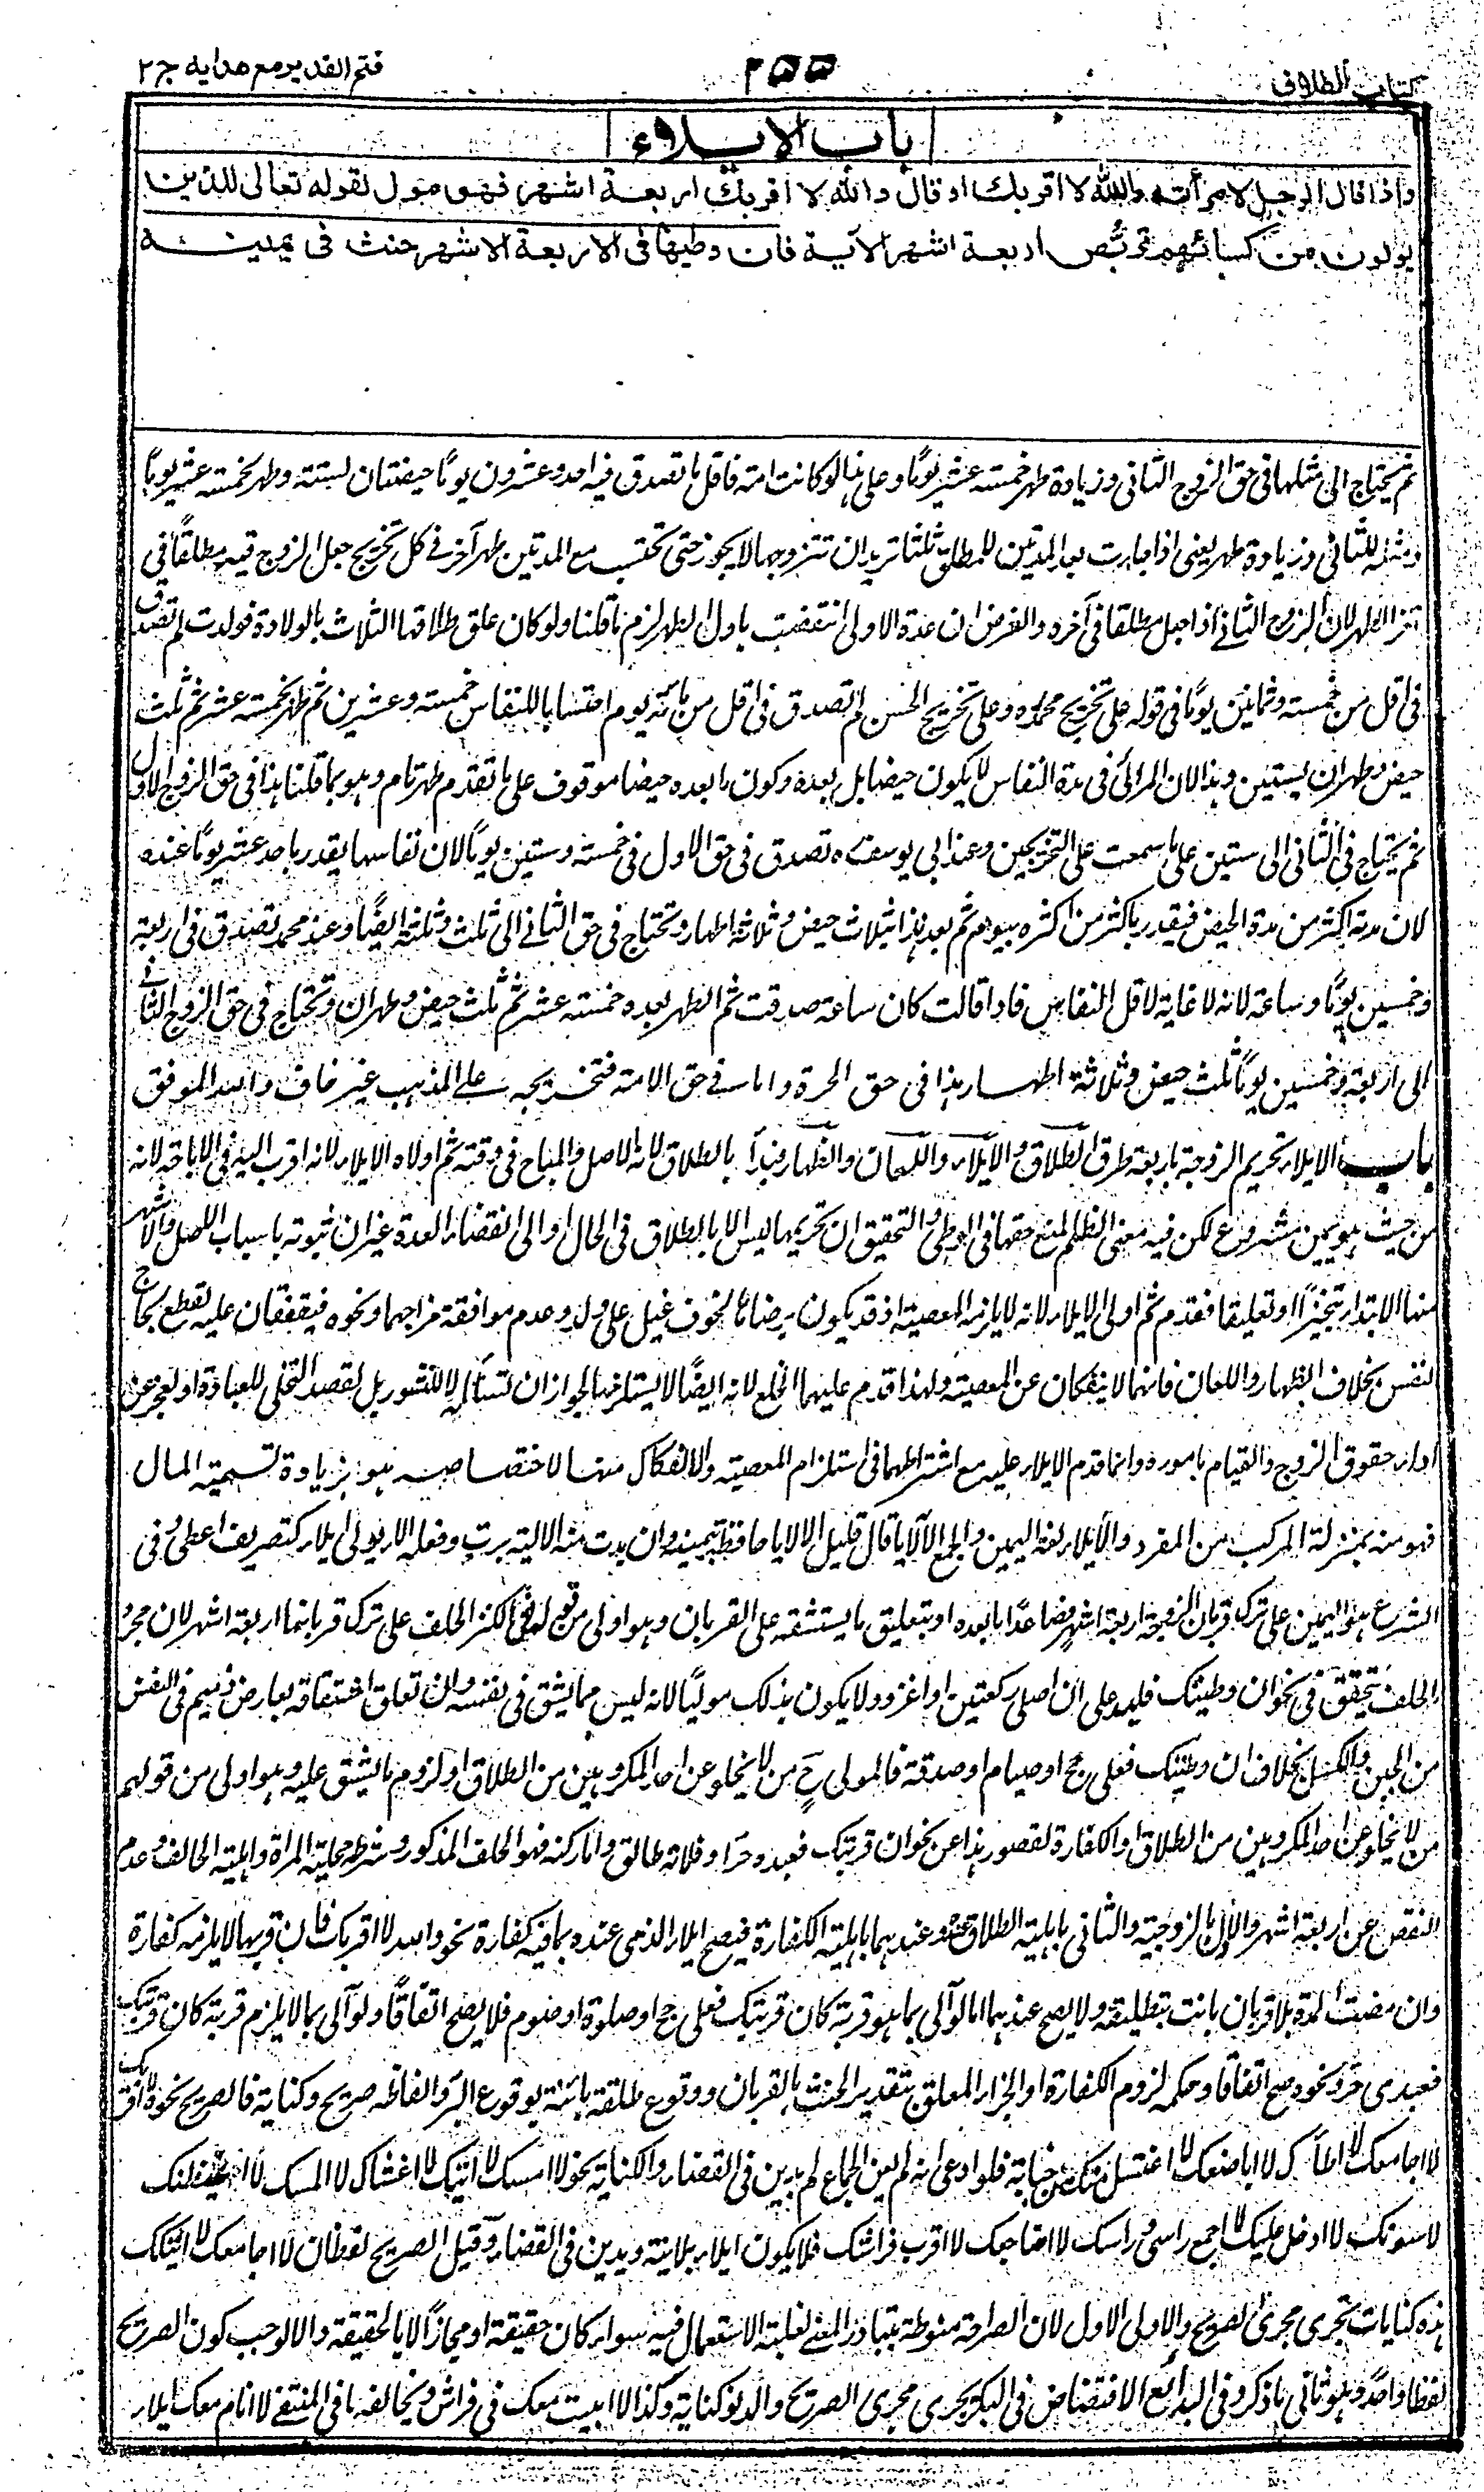 كتاب الطلاق
٢٥٥
فتح القدير مع هداية ج ٢
باب الايلاء
واذا قال الرجل لامرأته والله لا اقربك او قال والله لا اقربك اربعة اشهر فهو مول لقوله تعالى للذين
يولون من نسائهم تربص اربعة اشهر الآية فان وطيها فى الاربعة الاشهر حنث فى يمينه
ثم يحتاج الى مثلها فى حق الزوج الثانى وزيادة طهر خمسة عشر يوما وعلى هذا لو كانت امة فاقل ما تصدق فيه احد وعشرون يوما حيضتان بستة وطهر بخمسة عشر يوما
ومثله للثانى وزيادة طهر يعنى اذا جاءت بعد المدتين للمطلق ثلثا تريد ان تتزوجها لا يجوز حتى تحتسب مع المدتين طهر آخر فى كل تخريج جعل الزوج فيه مطلقا فى
الطهر لان الزوج الثانى اذا جعل مطلقا فى آخره والفرض ان عدة الاولى انقضت باول الطهر لزم ما قلنا ولو كان علق طلاقها الثلاث بالولادة فولدت لم تصدق
فى اقل من خمسة وثمانين يوما فى قوله على تخريج محمد ره وعلى تخريج الحسن لم تصدق فى اقل من مائة يوم احتسابا للنفاس خمسة وعشرين ثم طهر بخمسة عشر ثم ثلث
حيض وطهران بستين وهذا لان المرائى فى مدة النفاس لا يكون حيضا بل بعده وكون ما بعده حيضا موقوف على ما تقدم طهر تام وهو بما قلنا هذا فى حق الزوج الاول
ثم يحتاج فى الثانى الى ستين على ما سمعت على التخريجين وعند ابى يوسف ره تصدق فى حق الاول فى خمسة وستين يوما لان نفاسها يقدر باحد عشر يوما عنده
لان مدته اكثر من مدة الحيض فيقدر باكثر من اكثره بيوم ثم بعد هذا ثلاث حيض وثلاثة اطهار وتحتاج فى حق الثانى الى ثلث وثلثة ايضا وعند محمد تصدق فى اربعة
وخمسين يوما وساعة لانه لا غاية لاقل النفاس فاذا قالت كان ساعة صدقت ثم الطهر بعده خمسة عشر ثم ثلث حيض وطهران وتحتاج فى حق الزوج الثانى
الى اربعة وخمسين يوما ثلث حيض وثلاثة اطهار هذا فى حق الحرة واما فى حق الامة فتخريجه على المذهب غير خاف والله الموفق
باب الايلاء تحريم الزوجة باربعة طرق الطلاق والايلاء واللعان والظهار فبدأ بالطلاق لانه الاصل والمباح فى وقته ثم اولاه الايلاء لانه اقرب اليه فى الاباحة لانه
من حيث هو يمين مشروع لكن فيه معنى الظلم لمنع حقها فى الوطى والتحقيق ان تحريمها ليس الا بالطلاق فى الحال او الى انقضاء العدة غير ان ثبوته باسباب الاصل والاشهر
منها الابتداء تنجيزا او تعليقا فقدم ثم اولى الايلاء لانه لا يلزمه المعصية اذ قد يكون برضاها لخوف غيل على ولد وعدم موافقة مزاجهما ونحوه فيتفقان عليه لقطع لجاج
النفس بخلاف الظهار واللعان فانهما لا ينفكان عن المعصية ولهذا قدم عليهما الخلع لانه ايضا لا يستلزمها لجواز ان تسأل لا للنشوز بل لقصد التخلى للعبادة او لعجز عن
اداء حقوق الزوج والقيام باموره وانما قدم الايلاء عليه مع اشتراكهما فى استلزام المعصية والانفكاك منها لاختصاصه هو بزيادة تسمية المال
فهو منه بمنزلة المركب من المفرد والايلاء لغة اليمين والجمع الالايا قال قليل الالايا حافظ ليمينه وان بدت منه الالية برت وفعله الا يولى ايلاء كتصريف اعطى وفى
الشرع هو اليمين على ترك قربان الزوجة اربعة اشهر فصاعدا بالله او بتعليق ما يستشقه على القربان وهو اولى من قوله فى الكنز الحلف على ترك قربانها اربعة اشهر لان مجرد
الحلف يتحقق فى نحو ان وطيتك فلله على ان اصلى ركعتين او اغزو ولا يكون بذلك موليا لانه ليس مما يشق فى نفسه وان تعلق اشتقاقه بعارض ذميم فى النفس
من الجبن والكسل بخلاف ان وطيتك فعلى حج او صيام او صدقة فالمولى ح من لا يخلو عن احد المكروهين من الطلاق او لزوم ما يشق عليه وهو اولى من قولهم
من لا يخلو عن احد المكروهين من الطلاق او الكفارة لقصور هذا عن نحو ان قربتك فعبده حر او فلانة طالق واما ركنه فهو الحلف المذكور وشرطه محلية المرأة واهلية الحالف وعدم
النقص عن اربعة اشهر والاول بالزوجية والثانى باهلية الطلاق عنده وعندهما باهلية الكفارة فيصح ايلاء الذمى عنده بما فيه كفارة نحو والله لا اقربك فان قربها لا يلزمه كفارة
وان مضت المدة بلا قربان بانت بتطليقة ولا يصح عندهما اما لو آلى بما هو قربة كان قربتك فعلى حج او صلوة او صوم فلا يصح اتفاقا ولو آلى بما لا يلزم قربة كان قربتك
فعبدى حر ونحوه صح اتفاقا وحكمه لزوم الكفارة او الجزاء المعلق بتقدير الحنث بالقربان ووقوع طلقة بائنة بوقوع البر والفاظه صريح وكناية فالصريح نحو لا اقربك
لا اجامعك لا اطأك لا اباضعك لا اغتسل منك من جنابة فلو ادعى انه لم يعن الجماع لم يدين فى القضاء والكناية نحو لا امسك لا آتيك لا اغشاك لا المسك لا اغيظنك
لاسوءنك لا ادخل عليك لا اجمع راسى وراسك لا اضاجعك لا اقرب فراشك فلا يكون ايلاء بلا نية ويدين فى القضاء وقيل الصريح لفظان لا اجامعك لا انيكك
هذه كنايات تجرى مجرى الصريح والاولى الاول لان الصراحة منوطة بتبادر المعنى لغلبة الاستعمال فيه سواء كان حقيقة او مجازا لا بالحقيقة والا لوجب كون الصريح
لفظا واحدا وهو ثانى ما ذكر وفى البدائع الافتضاض فى البكر يجرى مجرى الصريح والدنو كناية وكذا لا ابيت معك فى فراش ويخالفه ما فى المنتقى لا انام معك ايلاء